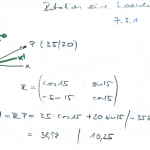 Rotation eine
7.3.1
P (35/20)
x
R = (cos15 sin15
-sin15 cos15)
= R·P = 35·cos15 + 20 sin15 / -35
= 38,98 / 10,25